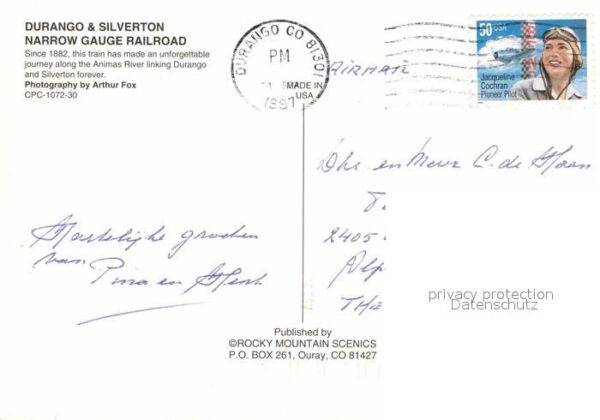 DURANGO & SILVERTON
NARROW GAUGE RAILROAD
Since 1882, this train has made an unforgettable
journey along the Animas River linking Durango
and Silverton forever.
Photography by Arthur Fox
CPC-1072-30
DURANGO CO 81301
PM
1997
MADE IN
USA
AIRMAIL
50 USA
Jacqueline
Cochran
Pioneer Pilot
Dhr. en Mevr C. de Haan
T.
2405
Alp
THE
Hartelijke groeten
van
Pina en Henk
privacy protection
Datenschutz
Published by
©ROCKY MOUNTAIN SCENICS
P.O. BOX 261, Ouray, CO 81427